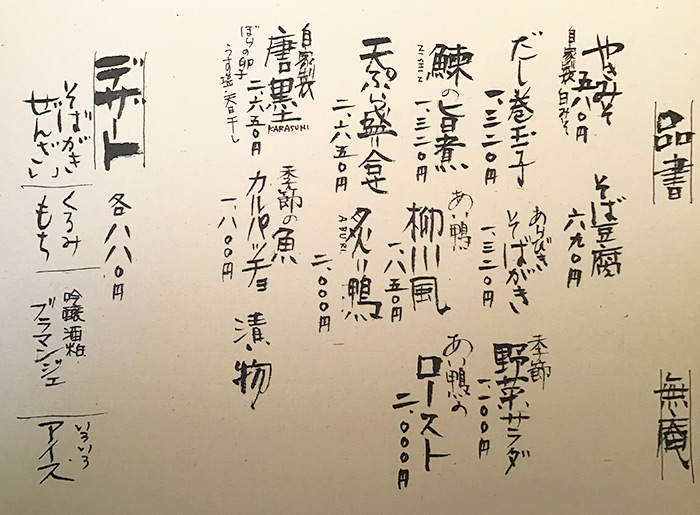 品書
無庵
やきみそ
五八〇円
自家製 白みそ
そば豆腐
六九〇円
だし巻玉子
一、三二〇円
あらびき
そばがき
一、三二〇円
季節
野菜サラダ
一、一〇〇円
鰊の旨煮
一、三二〇円
あい鴨
柳川風
一、八五〇円
あい鴨の
ロースト
二、〇〇〇円
天ぷら盛り合せ
二、六五〇円
炙り鴨
ABURI
二、〇〇〇円
自家製
唐墨
KARASUMI
二、六五〇円
ぼらの卵子
うす塩 天日干し
季節の魚
カルパッチョ
一、八〇〇円
漬物
デザート
各八八〇円
そばがき
ぜんざい
くるみ
もち
吟醸酒粕
ブラマンジェ
いろいろ
アイス